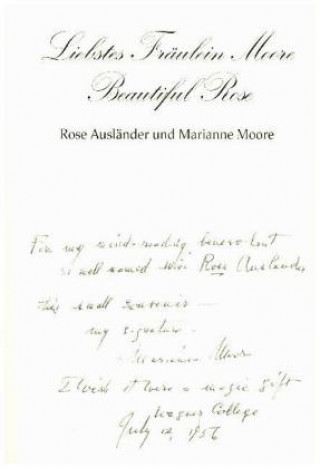 Liebstes Fräulein Moore
Beautiful Rose
Rose Ausländer und Marianne Moore
For my mind-reading benevolent
so well named Miss Rose Ausländer
this small souvenir —
my signature.
Marianne Moore
I wish it were a magic gift
Wagner College
July 12, 1956